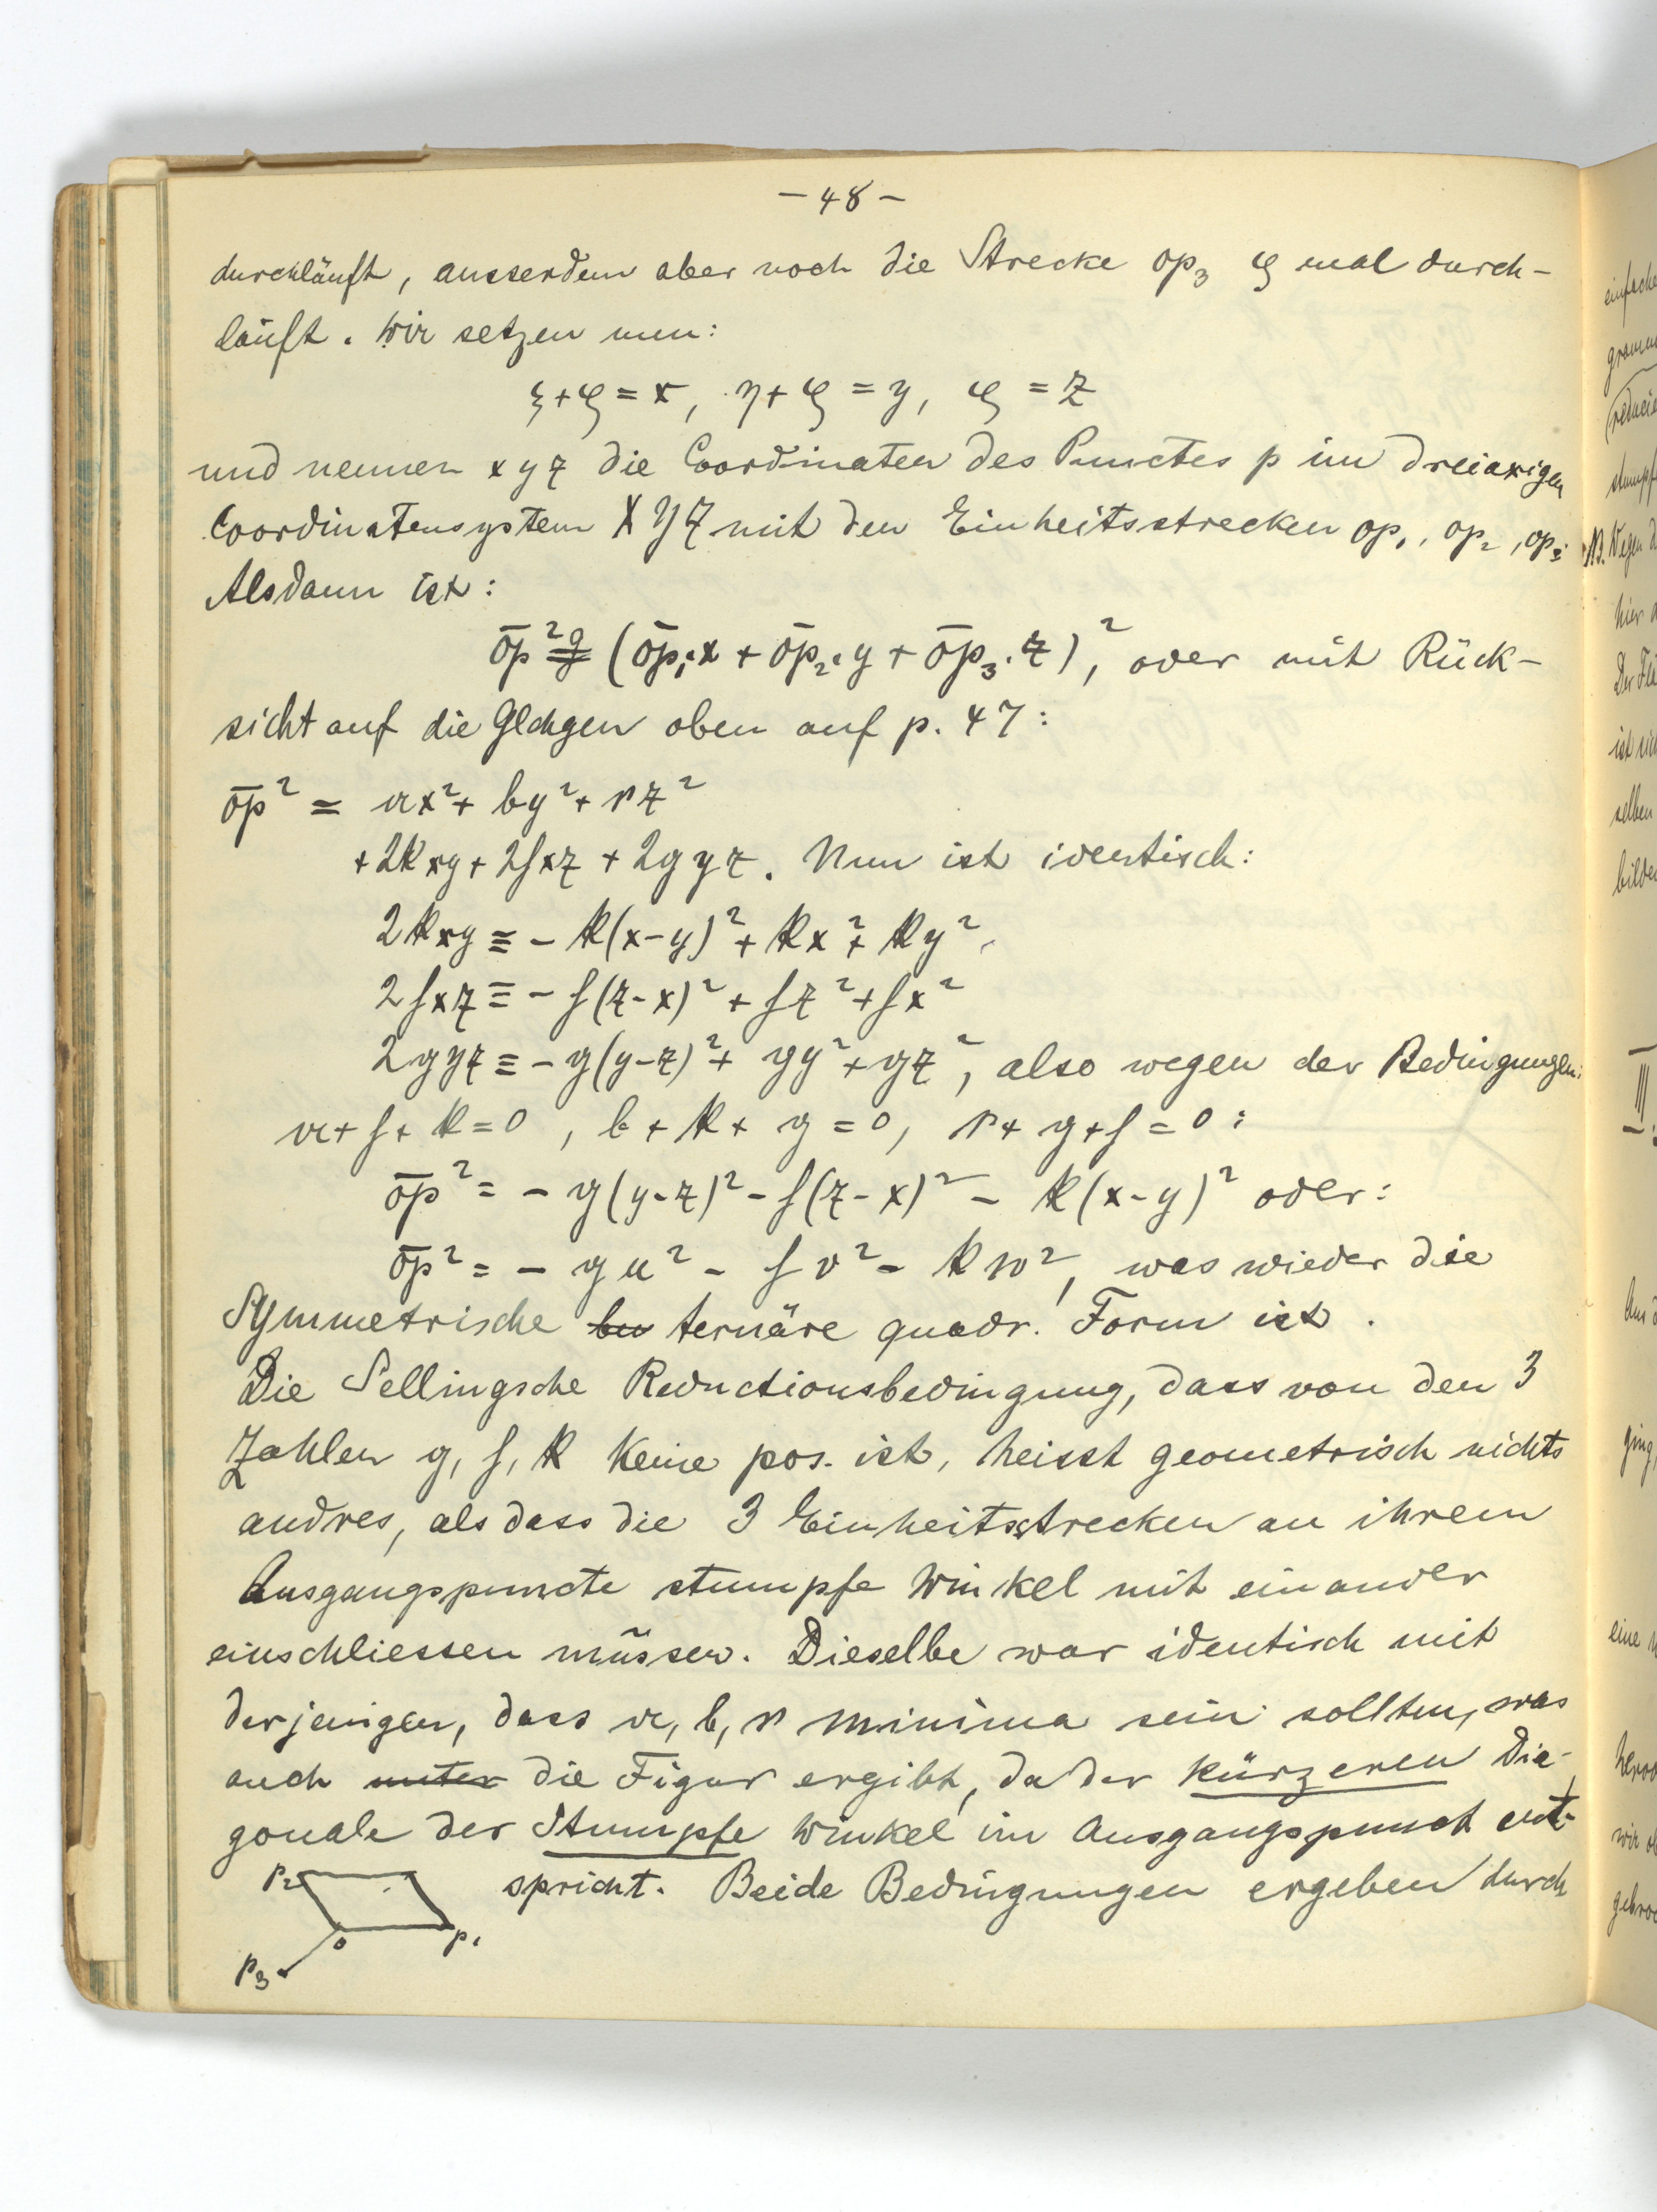 — 48 —
durchläuft, ausserdem aber noch die Strecke op₃ ζ mal durch-
läuft. Wir setzen nun:
ξ+ζ = x, η+ζ = y, ζ = z
und nennen x y z die Coordinaten des Punctes p im dreiaxigen
Coordinatensystem X Y Z mit den Einheitsstrecken op₁, op₂, op₃.
Alsdann ist:
op² = (op₁.x + op₂.y + op₃.z)², oder mit Rück-
sicht auf die Glchgen oben auf p. 47:
op² = ax² + by² + cz²
+2kxy + 2fxz + 2gyz. Nun ist identisch:
2kxy ≡ - k(x-y)² + kx² + ky²,
2fxz ≡ - f(z-x)² + fz² + fx²
2gyz ≡ - g(y-z)² + gy² + gz², also wegen der Bedingungen:
a+f+k=0, b+k+g=0, c+g+f=0:
op² = - g(y-z)² - f(z-x)² - k(x-y)² oder:
op² = - gu² - fv² - kw², was wieder die
Symmetrische ternäre quadr. Form ist.
Die Sellingsche Reductionsbedingung, dass von den 3
Zahlen g, f, k keine pos. ist, heisst geometrisch nichts
andres, als dass die 3 Einheitsstrecken an ihrem
Ausgangspuncte stumpfe Winkel mit einander
einschliessen müssen. Dieselbe war identisch mit
derjenigen, dass a, b, c minima sein sollten, was
auch unter die Figur ergibt, da der kürzeren Dia-
gonale der Stumpfe Winkel im Ausgangspunct ent-
spricht. Beide Bedingungen ergeben durch
p₂
o
p₁
p₃